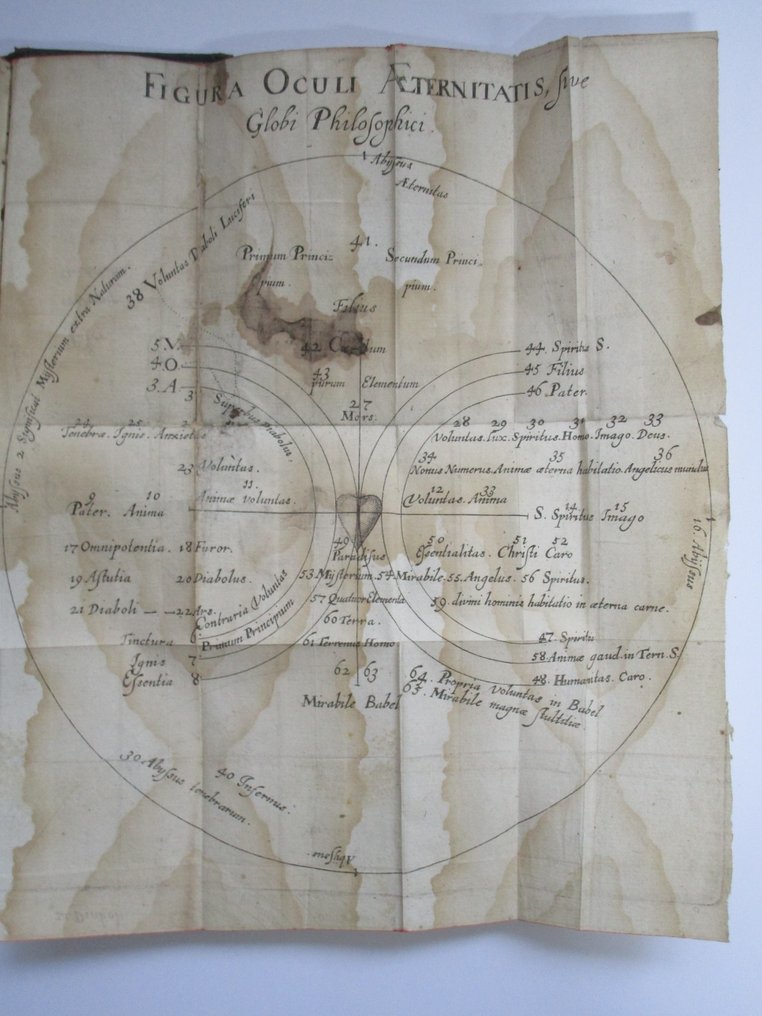 FIGURA OCULI ÆTERNITATIS, sive
Globi Philosophici.
Abyssus
Æternitas
41.
Primum Princi= Secundum Princi=
pium. pium.
38 Voluntas Diaboli Luciferi
Abyssus 2 Mysterium extra Naturam.
Filius
5. V. 42 44. Spiritus S.
4. O. 43 45 Filius
3. A purum Elementum 46 Pater.
27
Mors.
Superbus diabolus.
25 28 29 30 31 32 33
Tenebræ. Ignis. Anxietas Voluntas. Lux. Spiritus. Homo. Imago. Deus.
34 35 36
23 Voluntas. Nonus Numerus. Animæ æterna habitatio. Angelicus mundus
11.
Animæ voluntas.
9 10 12 33 14 15
Pater. Anima Voluntas. Anima S. Spiritus Imago
16. Abyssus
49 50 51 52
17 Omnipotentia. 18 Furor. Paradisus Essentialitas. Christi Caro
19 Astutia 20 Diabolus. 53. Mysterium. 54 Mirabile. 55. Angelus. 56 Spiritus.
57 Quatuor Elementa
21 Diaboli — — 22 Ars. 59. divini hominis habitatio in æterna carne.
Contraria Voluntas
60 Terra.
Primum Principium
Tinctura 6 61 Terrenus Homo 47. Spiritu
Ignis 7 58. Animæ gaud. in Tern. S.
Essentia 8 62 63 48. Humanitas. Caro.
Mirabile Babel
64. Propria Voluntas in Babel
65. Mirabile magnæ stultitiæ
30 Abyssus tenebrarum.
40 Infernus.
Abyssus.